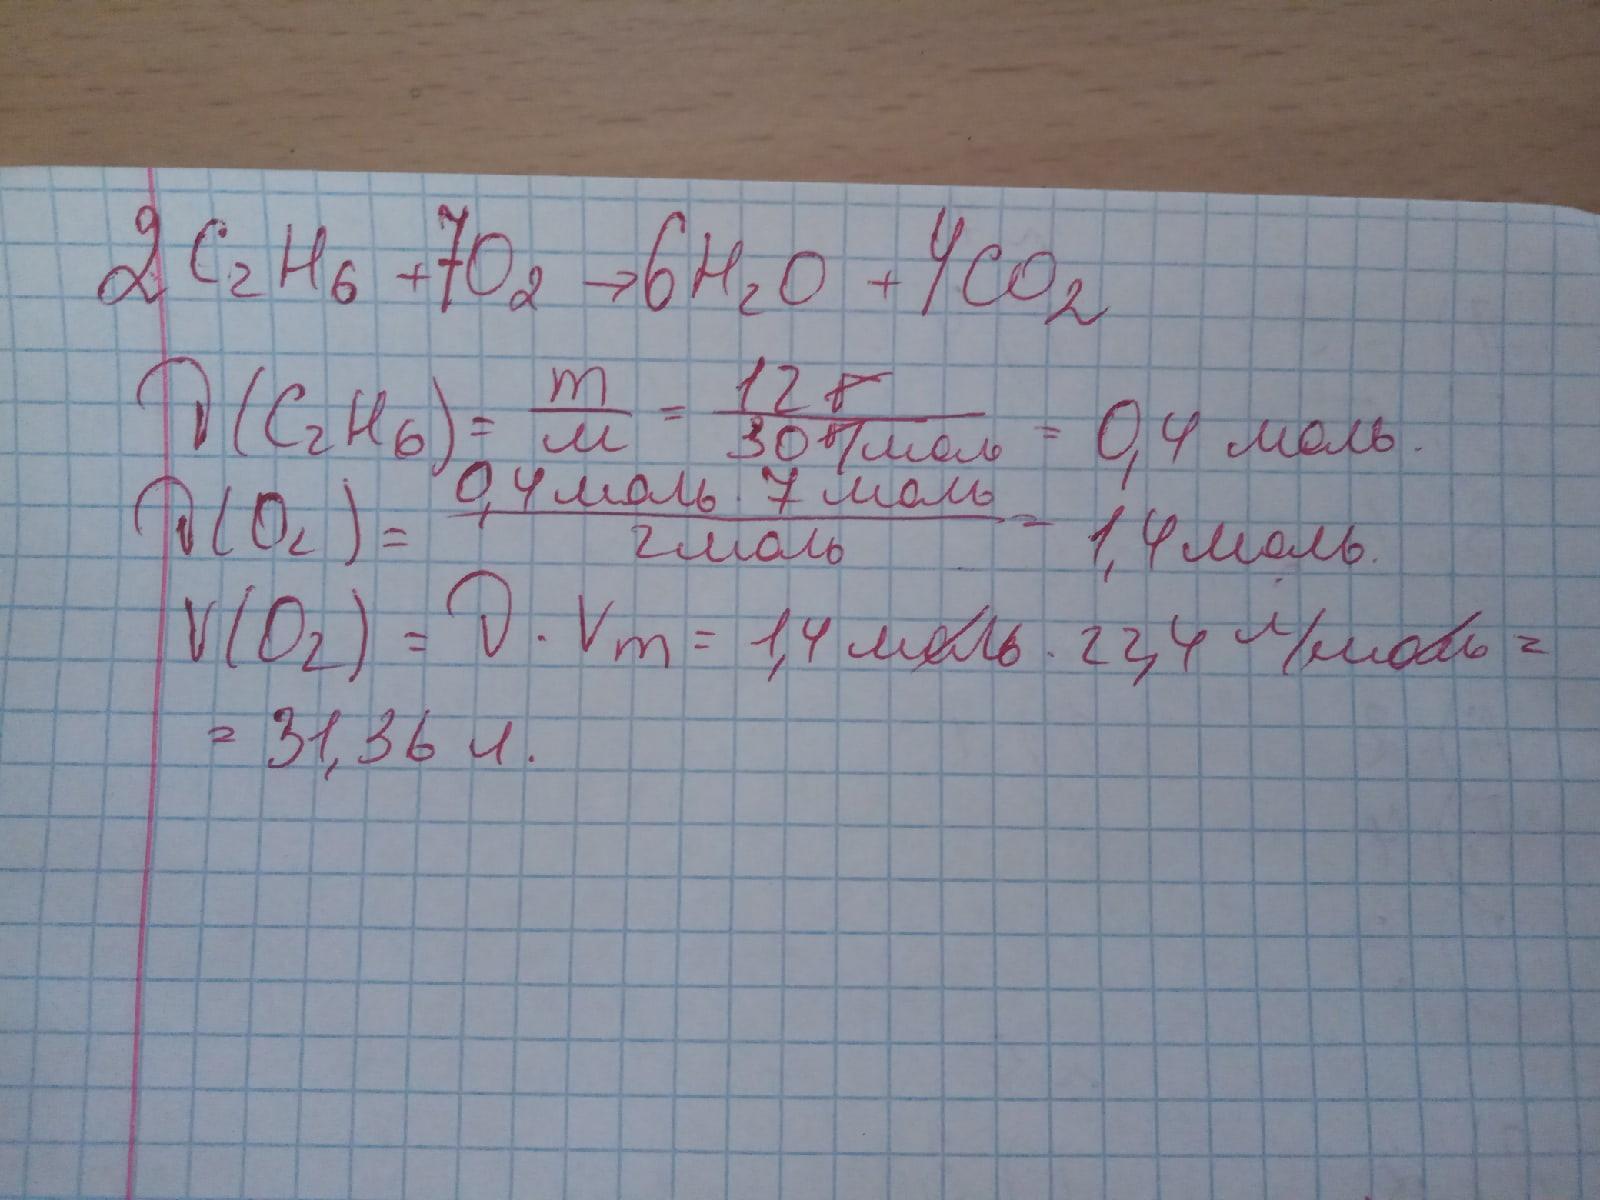 2C₂H₆ + 7O₂ → 6H₂O + 4CO₂
ν(C₂H₆) = m/M = 12 г / 30 г/моль = 0,4 моль.
ν(O₂) = 0,4 моль · 7 моль / 2 моль = 1,4 моль.
V(O₂) = ν · Vm = 1,4 моль · 22,4 л/моль =
= 31,36 л.